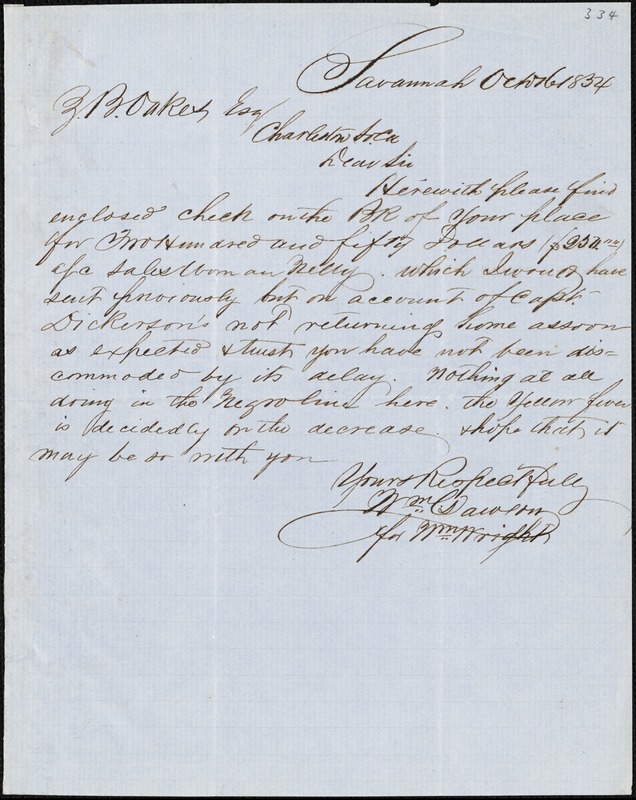 334
Savannah Octo 6 1854
Z. B. Oakes Esq
Charleston So. Ca
Dear Sir
Herewith please find
enclosed check on the BK of your place
for Two Hundred and fifty Dollars ($250.00)
a/c sales woman Nelly. which I would have
sent previously but on account of Capt.
Dickerson's not returning home as soon
as expected & trust you have not been dis=
commoded by its delay. Nothing at all
doing in the Negro line here. the Yellow fever
is decidedly on the decrease. & hope that it
may be so with you
Yours Respectfully
Wm. C. Dawson
for Wm. Wright